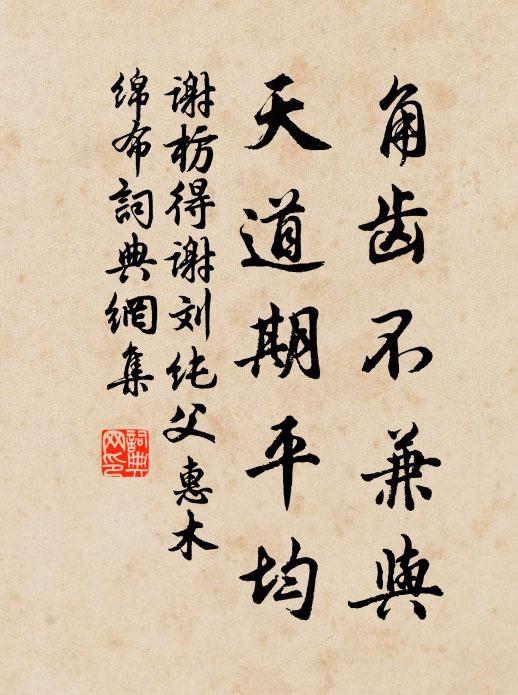 角齿不兼與
天道期平均
谢枋得谢刘纯父惠木
绵布詞典網集
詞典
网印